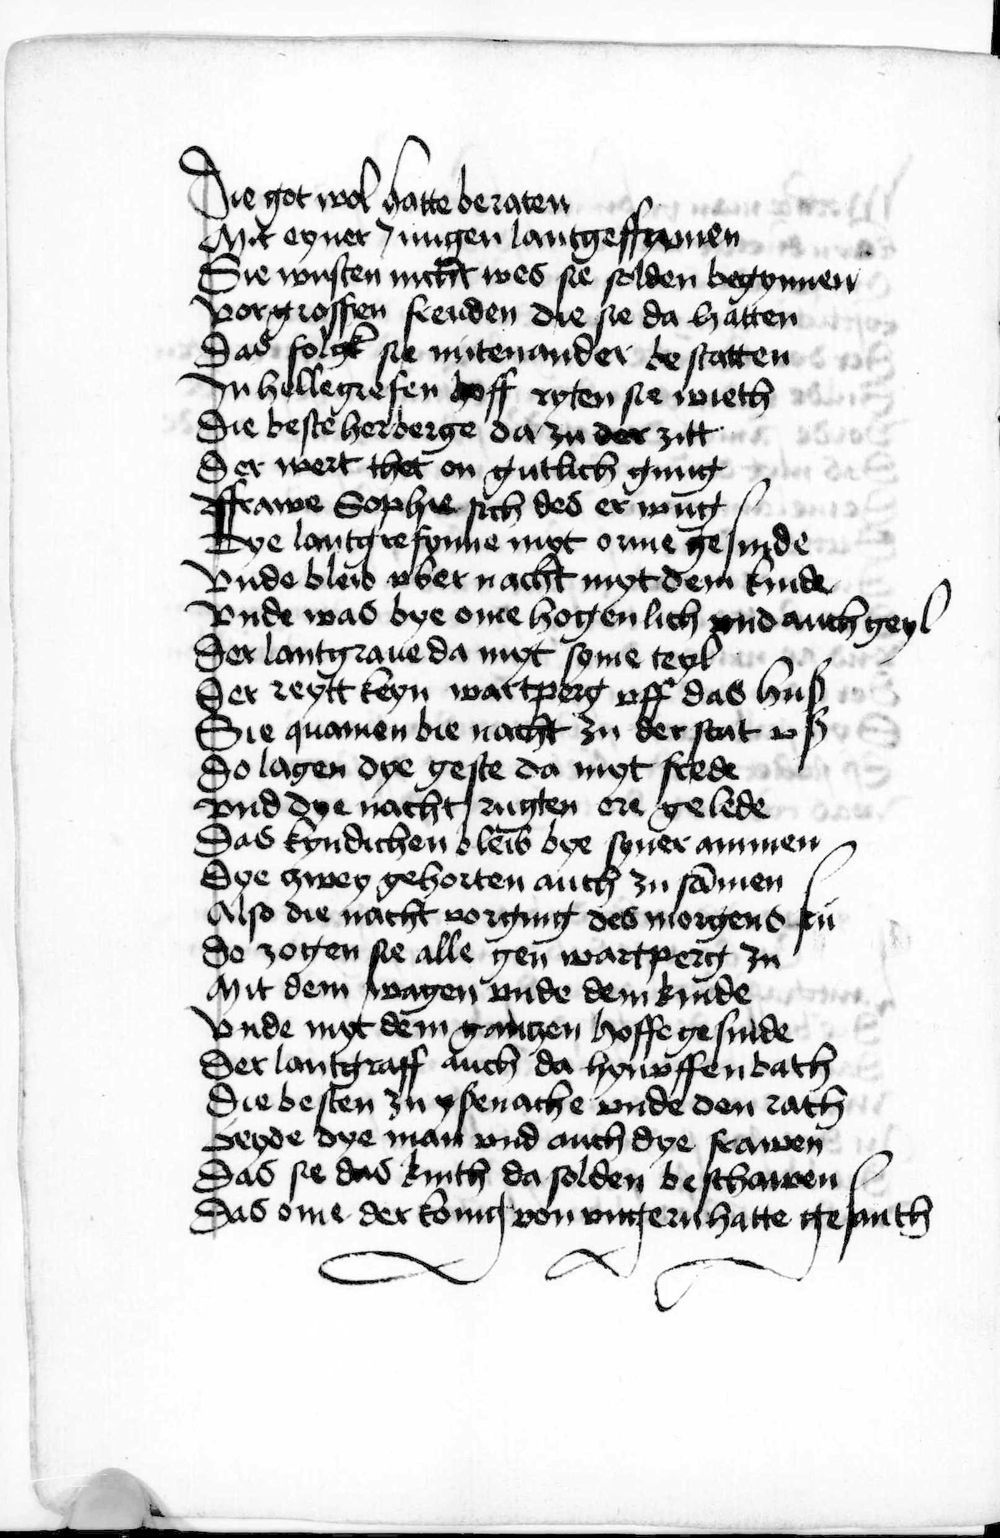 Die got wol hatte beraten
Mit eyner Jungen lantgeffynnen
Sie wusten nicht wes sie solden begynnen
Vor grossen freuden die sie da hatten
Das folgk sie mitenander bestatten
In hellegrefen hoff ryten sie wieth
Die beste herberge da zu der zitt
Der wert thet on gutlich gnug
Ffrawe Sophie sich des er wug
Dye lantgrefynne myt orme gesinde
Vnde bleib vber nacht myt dem kinde
Vnde was bye ome hogenlich vnd auch geyl
Der lantgraue da myt syme teyl
Der reytt keyn wartperg vff das huß
Sie quamen bie nacht zu der stat vß
Do lagen dye geste da myt frede
Vnd dye nacht rugten ere gelede
Das kyndichen bleib bye syner ammen
Dye zwey gehorten auch zu sāmen
Also die nacht vorging des morgens fru
Do zogen sie alle gen wartperg zu
Mit dem wagen vnde dem kinde
Vnde myt dem gantzen hoffe gesinde
Der lantgraff auch da hynvffen bath
Die besten zu ysenache vnde den rath
Beyde dye man vnd auch dye frawen
Das sie das kinth da solden beschawen
Das ome der konig von vngern hatte gesanth